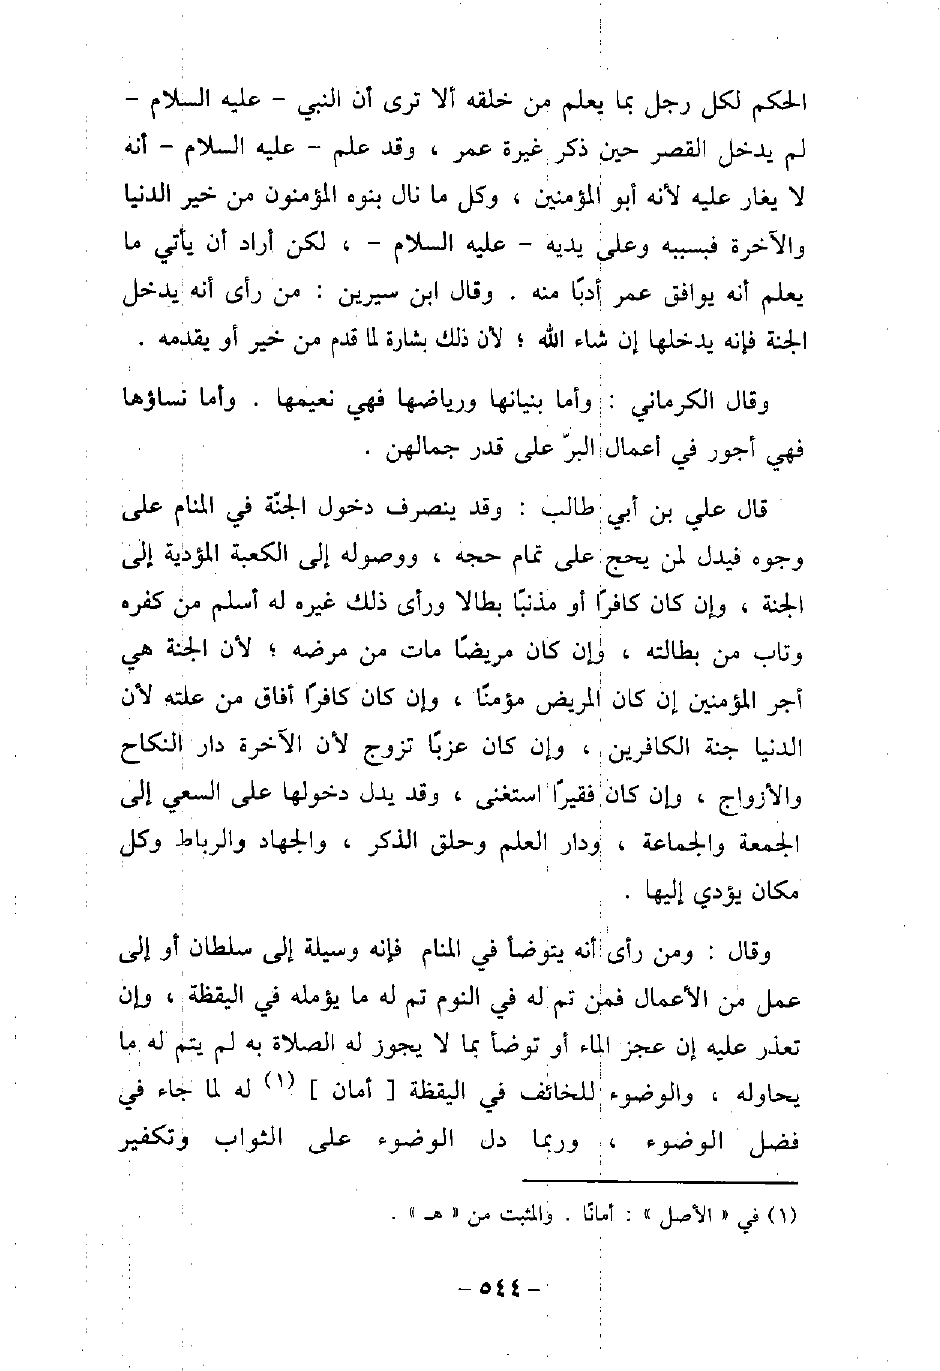 الحكم لكل رجل بما يعلم من خلقه ألا ترى أن النبي - عليه السلام -
لم يدخل القصر حين ذكر غيرة عمر ، وقد علم - عليه السلام - أنه
لا يغار عليه لأنه أبو المؤمنين ، وكل ما نال بنوه المؤمنون من خير الدنيا
والآخرة فبسببه وعلى يديه - عليه السلام - ، لكن أراد أن يأتي ما
يعلم أنه يوافق عمر أدبًا منه . وقال ابن سيرين : من رأى أنه يدخل
الجنة فإنه يدخلها إن شاء الله ؛ لأن ذلك بشارة لما قدم من خير أو يقدمه .
وقال الكرماني : وأما بنيانها ورياضها فهي نعيمها . وأما نساؤها
فهي أجور في أعمال البرّ على قدر جمالهن .
قال علي بن أبي طالب : وقد ينصرف دخول الجنّة في المنام على
وجوه فيدل لمن يحج على تمام حجه ، ووصوله إلى الكعبة المؤدية إلى
الجنة ، وإن كان كافرًا أو مذنبًا بطالا ورأى ذلك غيره له أسلم من كفره
وتاب من بطالته ، وإن كان مريضًا مات من مرضه ؛ لأن الجنة هي
أجر المؤمنين إن كان المريض مؤمنًا ، وإن كان كافرًا أفاق من علته لأن
الدنيا جنة الكافرين ، وإن كان عزبًا تزوج لأن الآخرة دار النكاح
والأزواج ، وإن كان فقيرًا استغنى ، وقد يدل دخولها على السعي إلى
الجمعة والجماعة ، ودار العلم وحلق الذكر ، والجهاد والرباط وكل
مكان يؤدي إليها .
وقال : ومن رأى أنه يتوضأ في المنام فإنه وسيلة إلى سلطان أو إلى
عمل من الأعمال فمن تم له في النوم تم له ما يؤمله في اليقظة ، وإن
تعذر عليه إن عجز الماء أو توضأ بما لا يجوز له الصلاة به لم يتم له ما
يحاوله ، والوضوء للخائف في اليقظة [ أمان ] (١) له لما جاء في
فضل الوضوء ، وربما دل الوضوء على الثواب وتكفير
(١) في « الأصل » : أمانًا . والمثبت من « هـ » .
- ٥٤٤ -